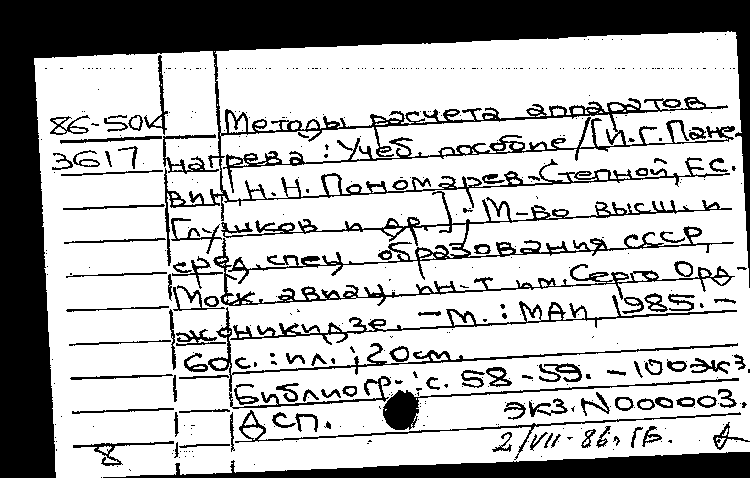 86-50К Методы расчета аппаратов
3617 нагрева : Учеб. пособие / [И.Г. Пане-
вин, Н.Н. Пономарев-Степной, Е.С.
Глушков и др.] ; М-во высш. и
сред. спец. образования СССР,
Моск. авиац. ин-т им. Серго Орд-
жоникидзе. - М. : МАИ, 1985. -
60с. : ил. ; 20см.
Библиогр.: с. 58-59. - 100экз.
ДСП. экз. N000003.
8 2/VII-86г. ГБ.